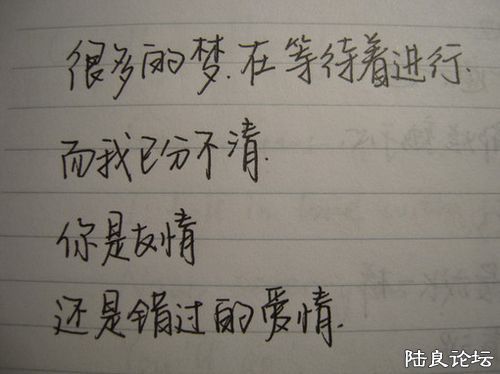 很多的梦.在等待着进行.
而我已分不清.
你是友情
还是错过的爱情.
陆良论坛